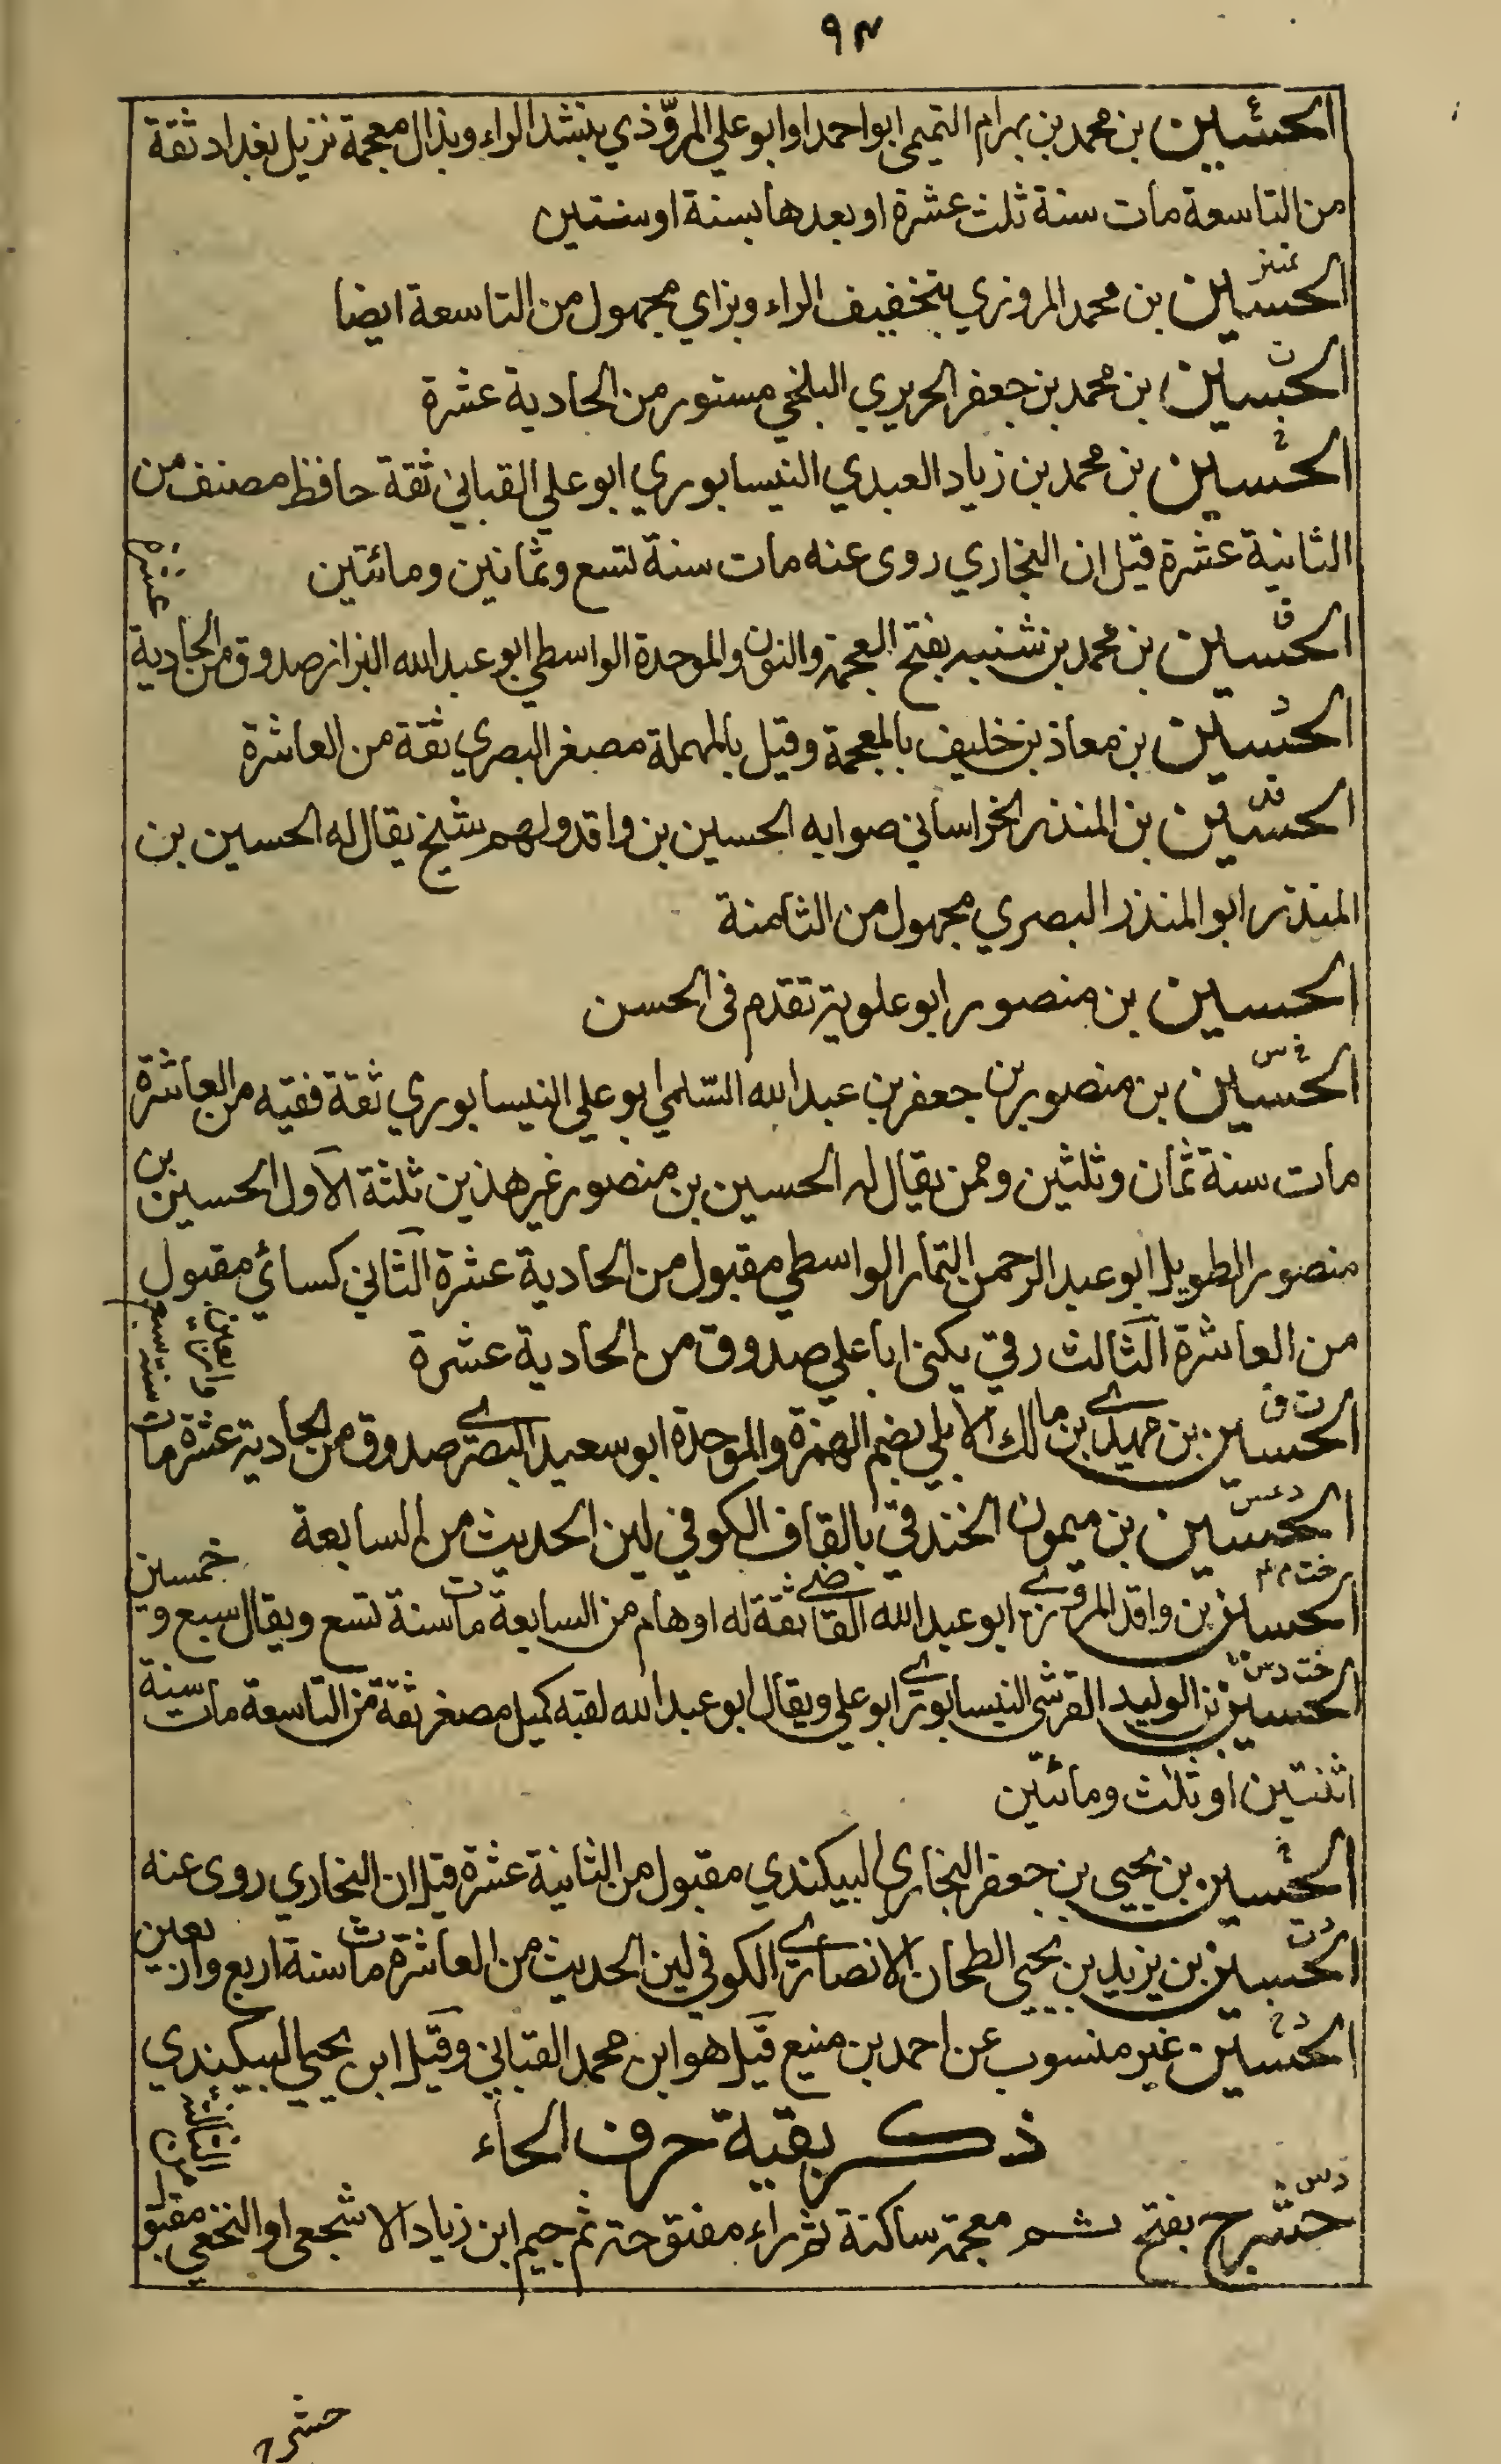 ٩٣
الحسين بن محمد بن بهرام التميمي ابو احمد او ابو علي المروّذي بتشد الراء وبذال معجمة نزيل بغداد ثقة
من التاسعة مات سنة ثلث عشرة او بعدها بسنة او سنتين
تمييز
الحسين بن محمد المروزي بتخفيف الراء وبزاي مجهول من التاسعة ايضا
ت
الحسين بن محمد بن جعفر الحريري البلخي مستور من الحادية عشرة
خ
الحسين بن محمد بن زياد العبدي النيسابوري ابو علي القباني ثقة حافظ مصنف من
الثانية عشرة قيل ان البخاري روى عنه مات سنة تسع وثمانين ومائتين
ق
الحسين بن محمد بن شنبه بفتح المعجمة والنون والموحدة الواسطي ابو عبد الله البزاز صدوق من الحادية
عشرة
د
الحسين بن معاذ بن خليف بالمعجمة وقيل بالمهملة مصغر البصري ثقة من العاشرة
قد
الحسين بن المنذر الخراساني صوابه الحسين بن واقد ولهم شيخ يقال له الحسين بن
المنذر ابو المنذر البصري مجهول من الثامنة
الحسين بن منصور ابو علوية تقدم فى الحسن
خ س
الحسين بن منصور بن جعفر بن عبد الله السّلمي ابو علي النيسابوري ثقة فقيه من العاشرة
مات سنة ثمان وثلثين وممن يقال له الحسين بن منصور غير هذين ثلثة الاول الحسين بن
منصور الطويل ابو عبد الرحمن التمار الواسطي مقبول من الحادية عشرة الثاني كسائي مقبول
من العاشرة الثالث رقي يكنى ابا علي صدوق من الحادية عشرة
ت ق
الحسين بن مهيدي بن مالك الابلي بضم الهمزة والموحدة ابو سعيد البصري صدوق من الحادية عشرة مات
سنة سبع واربعين
د عس
الحسين بن ميمون الخندقي بالقاف الكوفي لين الحديث من السابعة
خت م عم
الحسين بن واقد المروزي ابو عبد الله القاضي ثقة له اوهام من السابعة مات سنة تسع ويقال سبع و
خمسين
خت د س
الحسين بن الوليد القرشي النيسابوري ابو علي ويقال ابو عبد الله لقبه كميل مصغر ثقة من التاسعة مات سنة
اثنتين او ثلث ومائتين
خ
الحسين بن يحيى بن جعفر البخاري البيكندي مقبول من الثانية عشرة قيل ان البخاري روى عنه
د ت
الحسين بن يزيد بن يحيى الطحان الانصاري الكوفي لين الحديث من العاشرة مات سنة اربع واربعين
د خ
الحسين غير منسوب عن احمد بن منيع قيل هو ابن محمد القباني وقيل ابن يحيى البيكندي
ذكر بقية حرف الحاء
د س
حشرج بفتح ثم معجمة ساكنة ثم راء مفتوحة ثم جيم ابن زياد الاشجعي او النخعي مقبول
من الثالثة
حشرج